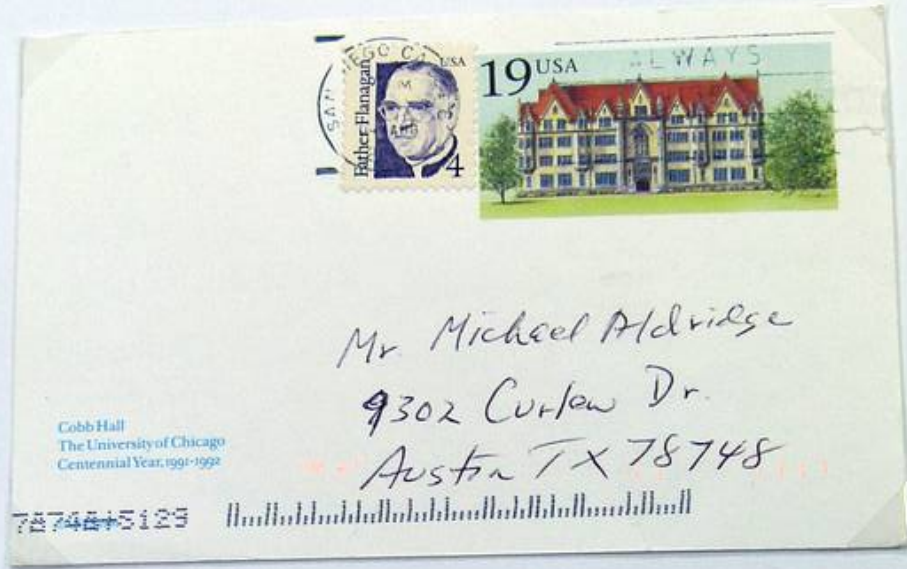 SAN DIEGO CA
Father Flanagan
USA
4
19 USA
ALWAYS
Mr. Michael Aldridge
9302 Curlew Dr.
Austin TX 78748
Cobb Hall
The University of Chicago
Centennial Year, 1991-1992